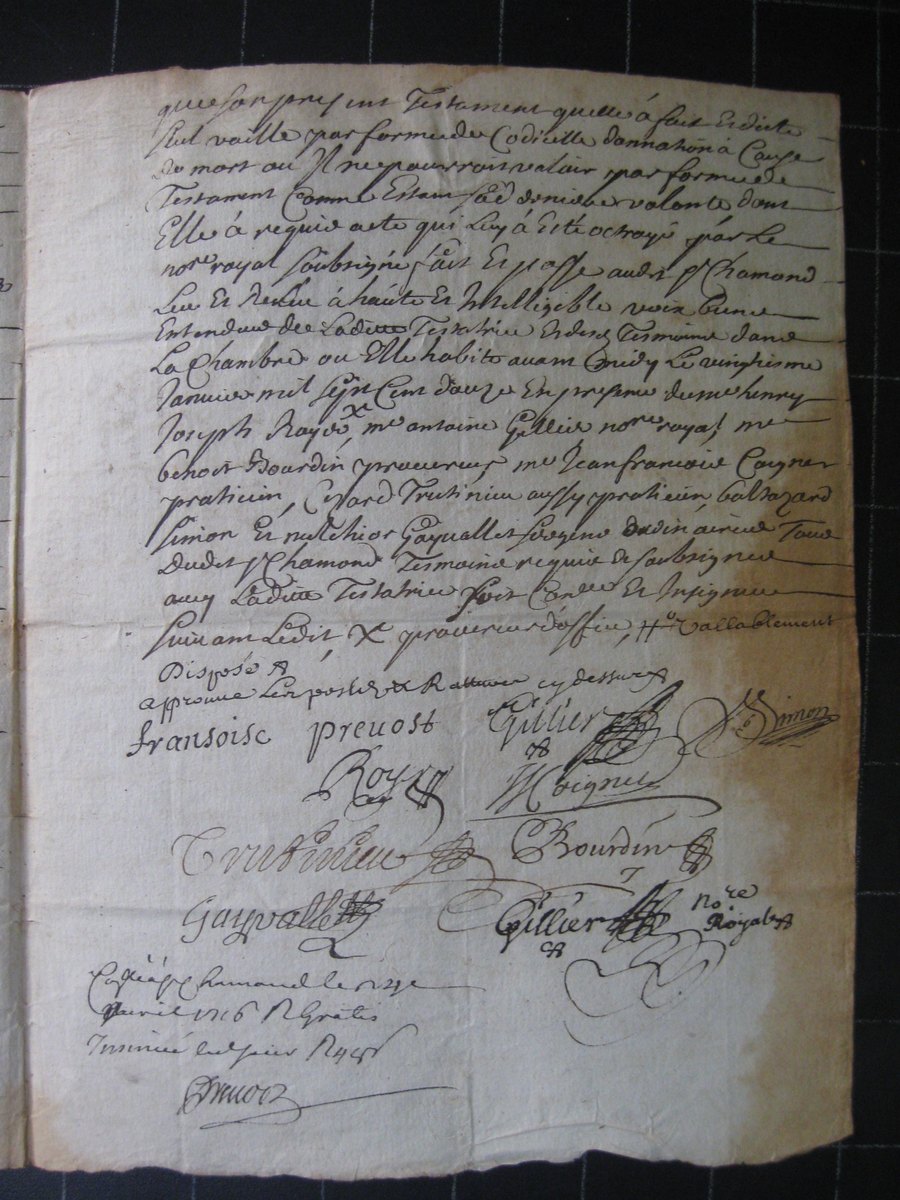 que son present Testament quelle à fait Et dicte
vaille par forme de Codicille donnation à Cause
de mort ou Il ne pourroit valoir par forme de
Testament Comme Estant sad derniere volonte dont
Elle à requis acte qui Luy à Esté octroyé par Le
nore royal soubsigné fait Et passe audt st Chamond
Leu Et Releu à haute Et Intelligible voix bien
Entendeue de Laditte Testatrice Et desd Tesmoins dans
La Chambre ou Elle habite avant midy Le vingtiesme
Janvier mil sept Cent douze En presence de me henry
Joseph Royer X, me antoine Gillier nore royal, me
benoist Bourdin procureur, me Jean francois Coignet
praticien, Trutinieu aussy praticien, baltazard
Simon Et melchior Gayvallet tous
dudit st Chamond Tesmoins requis Et soubsignes
avec Laditte Testatrice soit Et Insignue
suivant Ledit, X procureur d'office, # vallablement
Disposé
approuve Les cy dessus
fransoise prevost Gillier Simon
Royer Coignet
Trutinieu Bourdin
Gayvallet Gillier nore Royal
st Chamond le
avril 1716 R Gratis
Insinué led jour R
Prevost